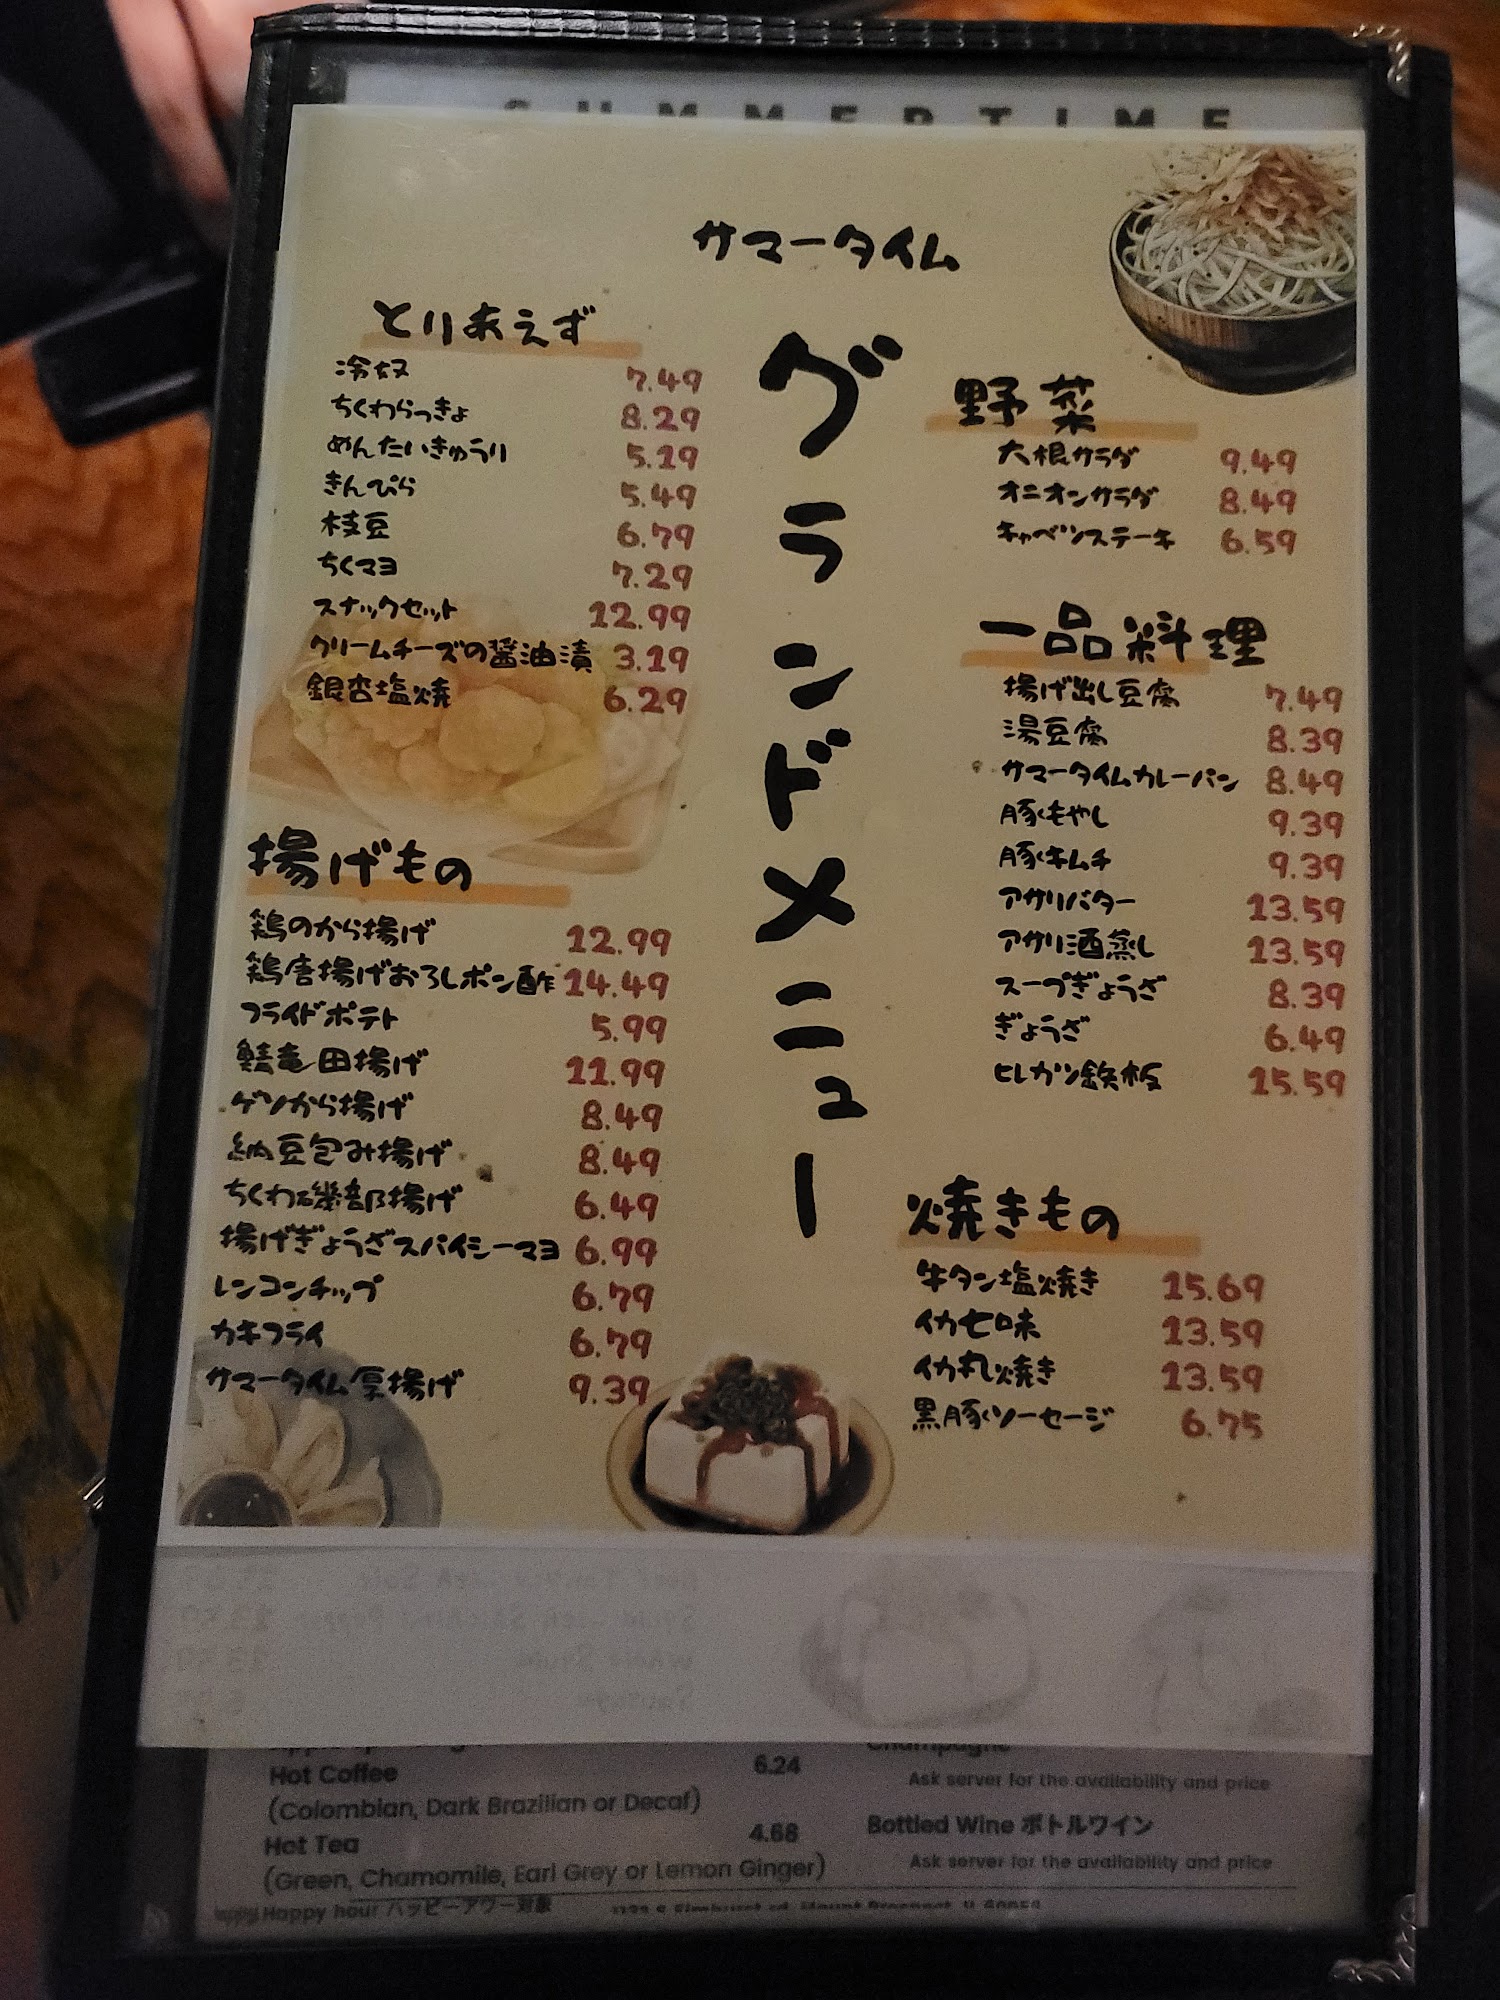 SUMMERTIME
サマータイム
グランドメニュー
とりあえず
冷奴 7.49
ちくわらっきょ 8.29
めんたいきゅうり 5.19
きんぴら 5.49
枝豆 6.79
ちくマヨ 7.29
スナックセット 12.99
クリームチーズの醤油漬 3.19
銀杏塩焼 6.29
揚げもの
鶏のから揚げ 12.99
鶏唐揚げおろしポン酢 14.49
フライドポテト 5.99
鯖竜田揚げ 11.99
ゲソから揚げ 8.49
納豆包み揚げ 8.49
ちくわ磯部揚げ 6.49
揚げぎょうざスパイシーマヨ 6.99
レンコンチップ 6.79
カキフライ 6.79
サマータイム厚揚げ 9.39
野菜
大根サラダ 9.49
オニオンサラダ 8.49
キャベツステーキ 6.59
一品料理
揚げ出し豆腐 7.49
湯豆腐 8.39
サマータイムカレーパン 8.49
豚もやし 9.39
豚キムチ 9.39
アサリバター 13.59
アサリ酒蒸し 13.59
スープぎょうざ 8.39
ぎょうざ 6.49
ヒレカツ鉄板 15.59
焼きもの
牛タン塩焼き 15.69
イカ七味 13.59
イカ丸焼き 13.59
黒豚ソーセージ 6.75
Hot Coffee 6.24
(Colombian, Dark Brazilian or Decaf)
Hot Tea 4.68
(Green, Chamomile, Earl Grey or Lemon Ginger)
Happy hour ハッピーアワー対象
Champagne
Ask server for the availability and price
Bottled Wine ボトルワイン
Ask server for the availability and price